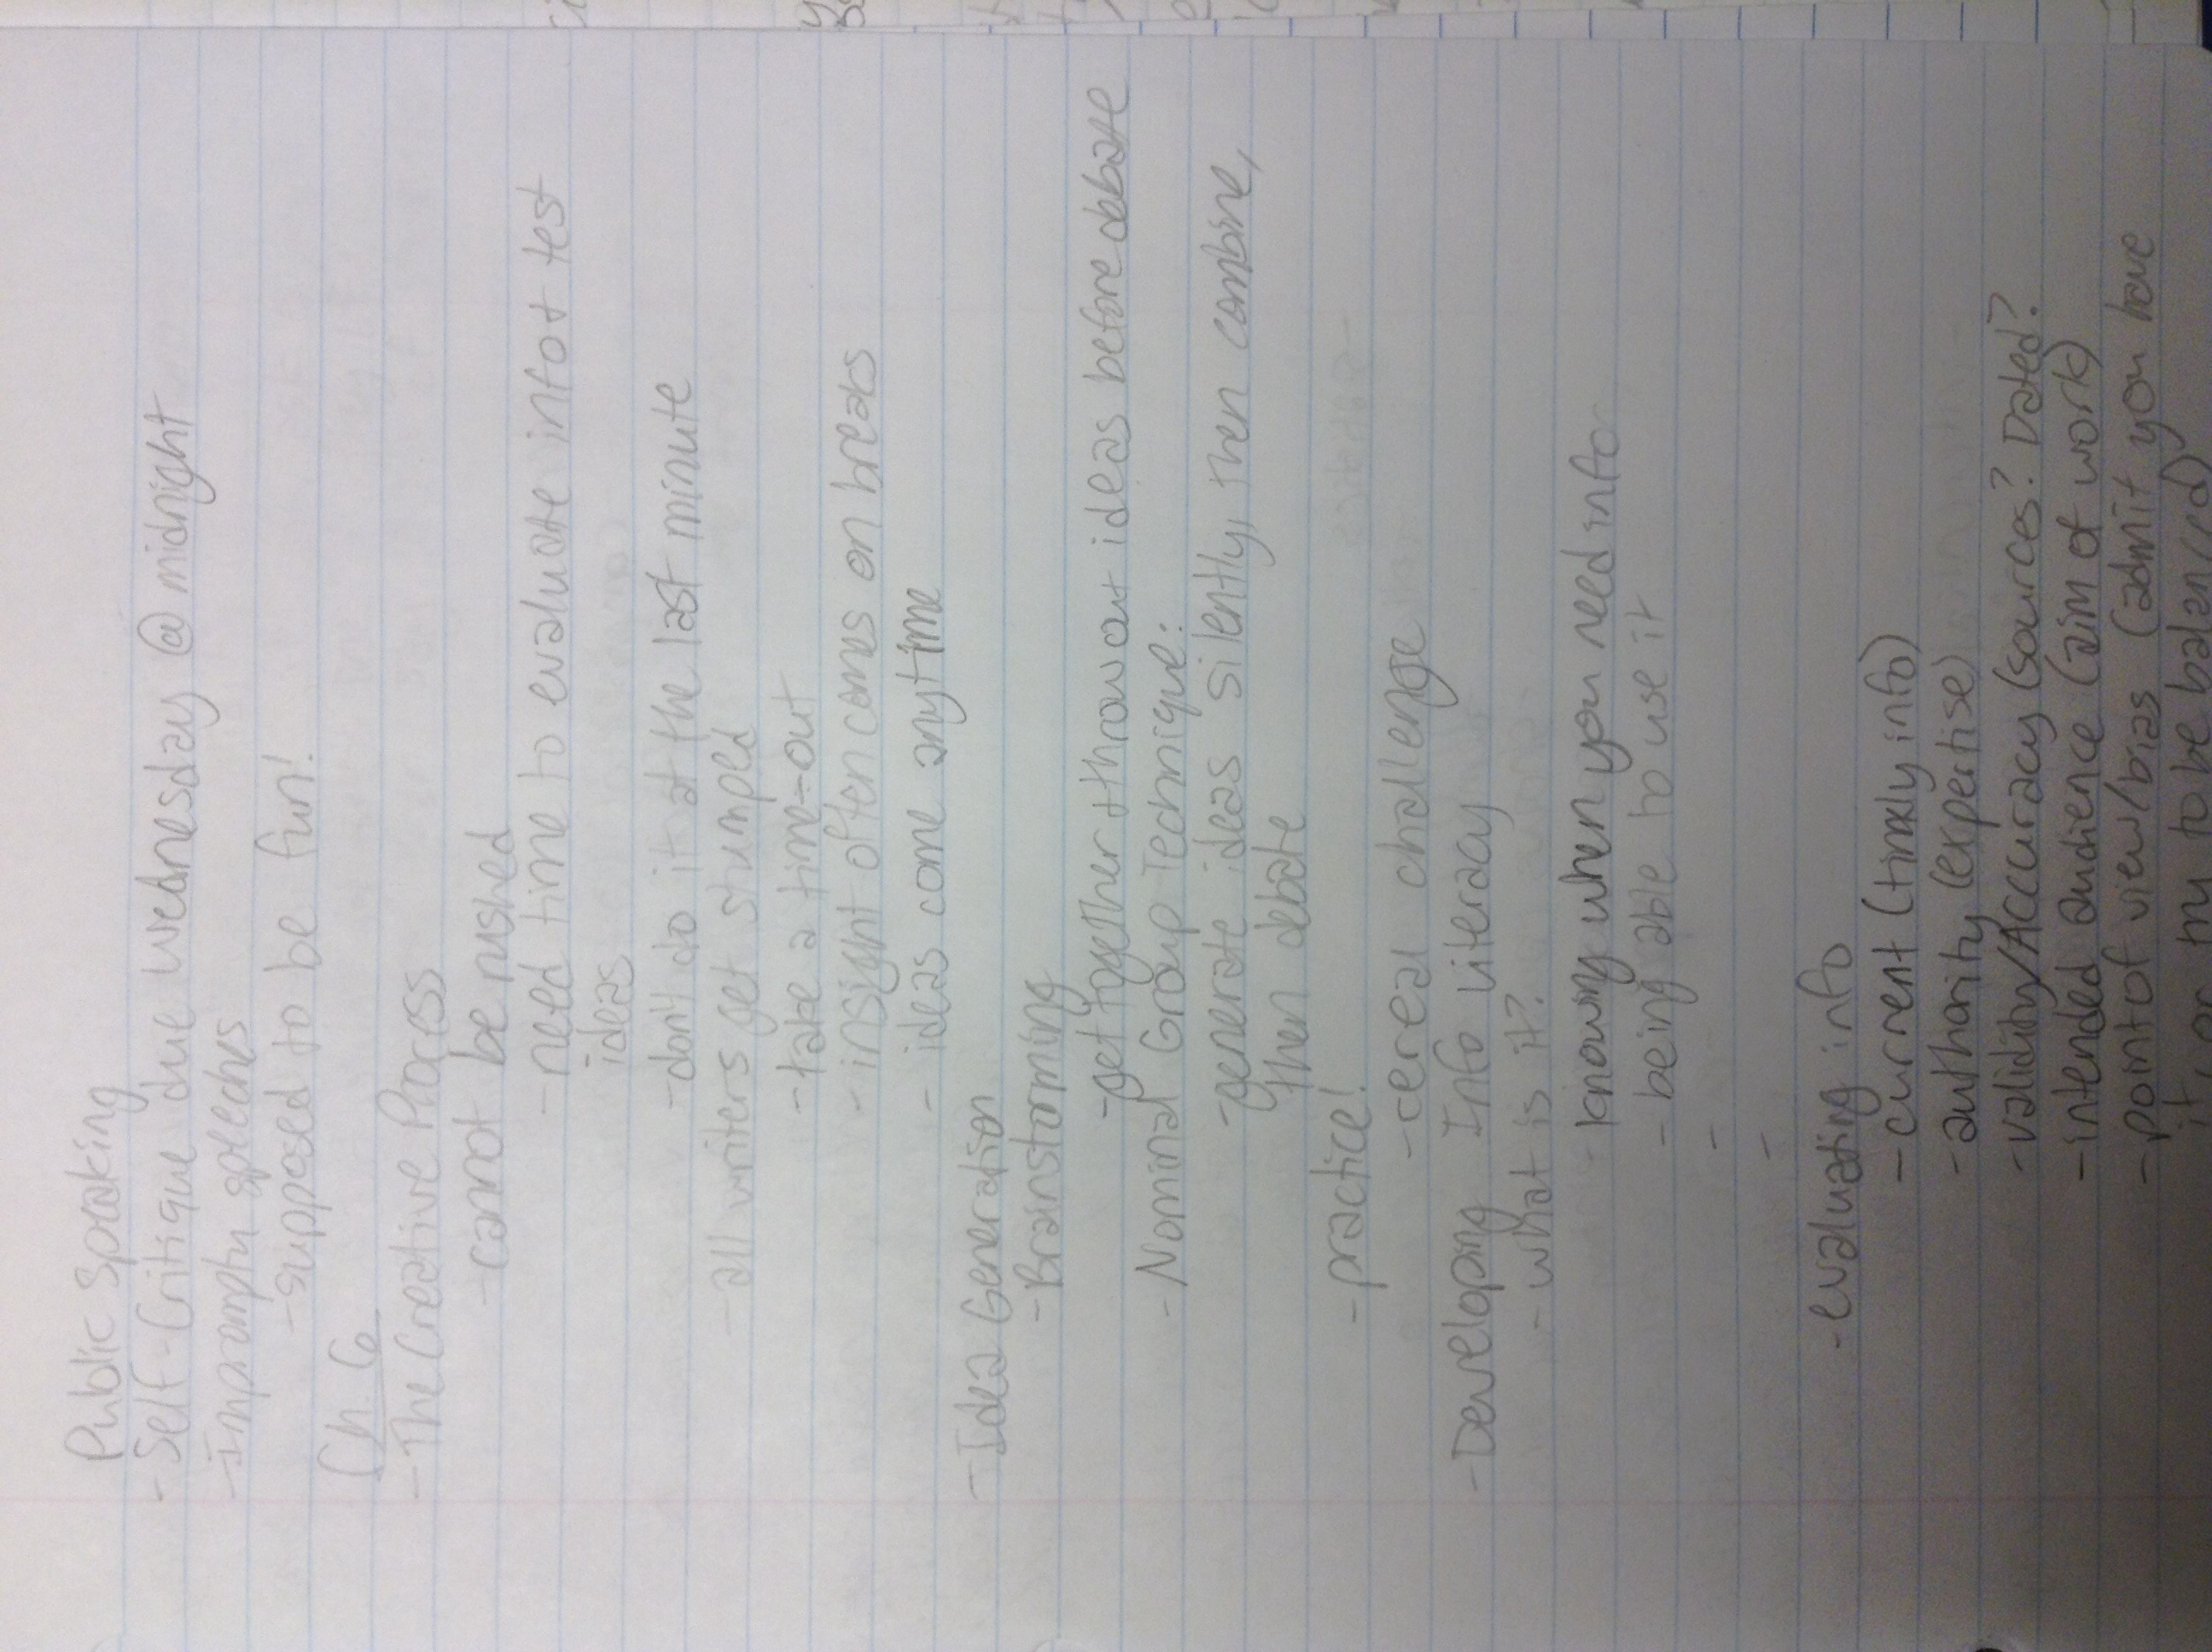 Public Speaking
- Self-Critique due Wednesday @ midnight
- impromptu speeches
- supposed to be fun!
Ch. 6
- The Creative Process
- cannot be rushed
- need time to evaluate info + test
ideas
- don't do it at the last minute
- all writers get stumped
- take a time-out
- insight often comes on breaks
- ideas come anytime
- Idea Generation
- Brainstorming
- get together + throw out ideas before debate
- Nominal Group Technique:
- generate ideas silently, then combine,
then debate
- practice!
- cereal challenge
- Developing Info Literacy
- what is it?
- knowing when you need info
- being able to use it
-
-
- evaluating info
- current (timely info)
- authority (expertise)
- validity/Accuracy (sources? Dated?
- intended audience (aim of work)
- point of view/bias (admit you have
it, to be balanced)